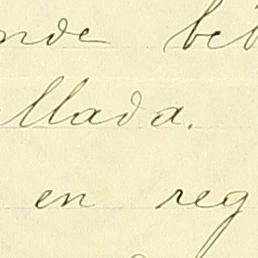 nde beb
llada.
en reg